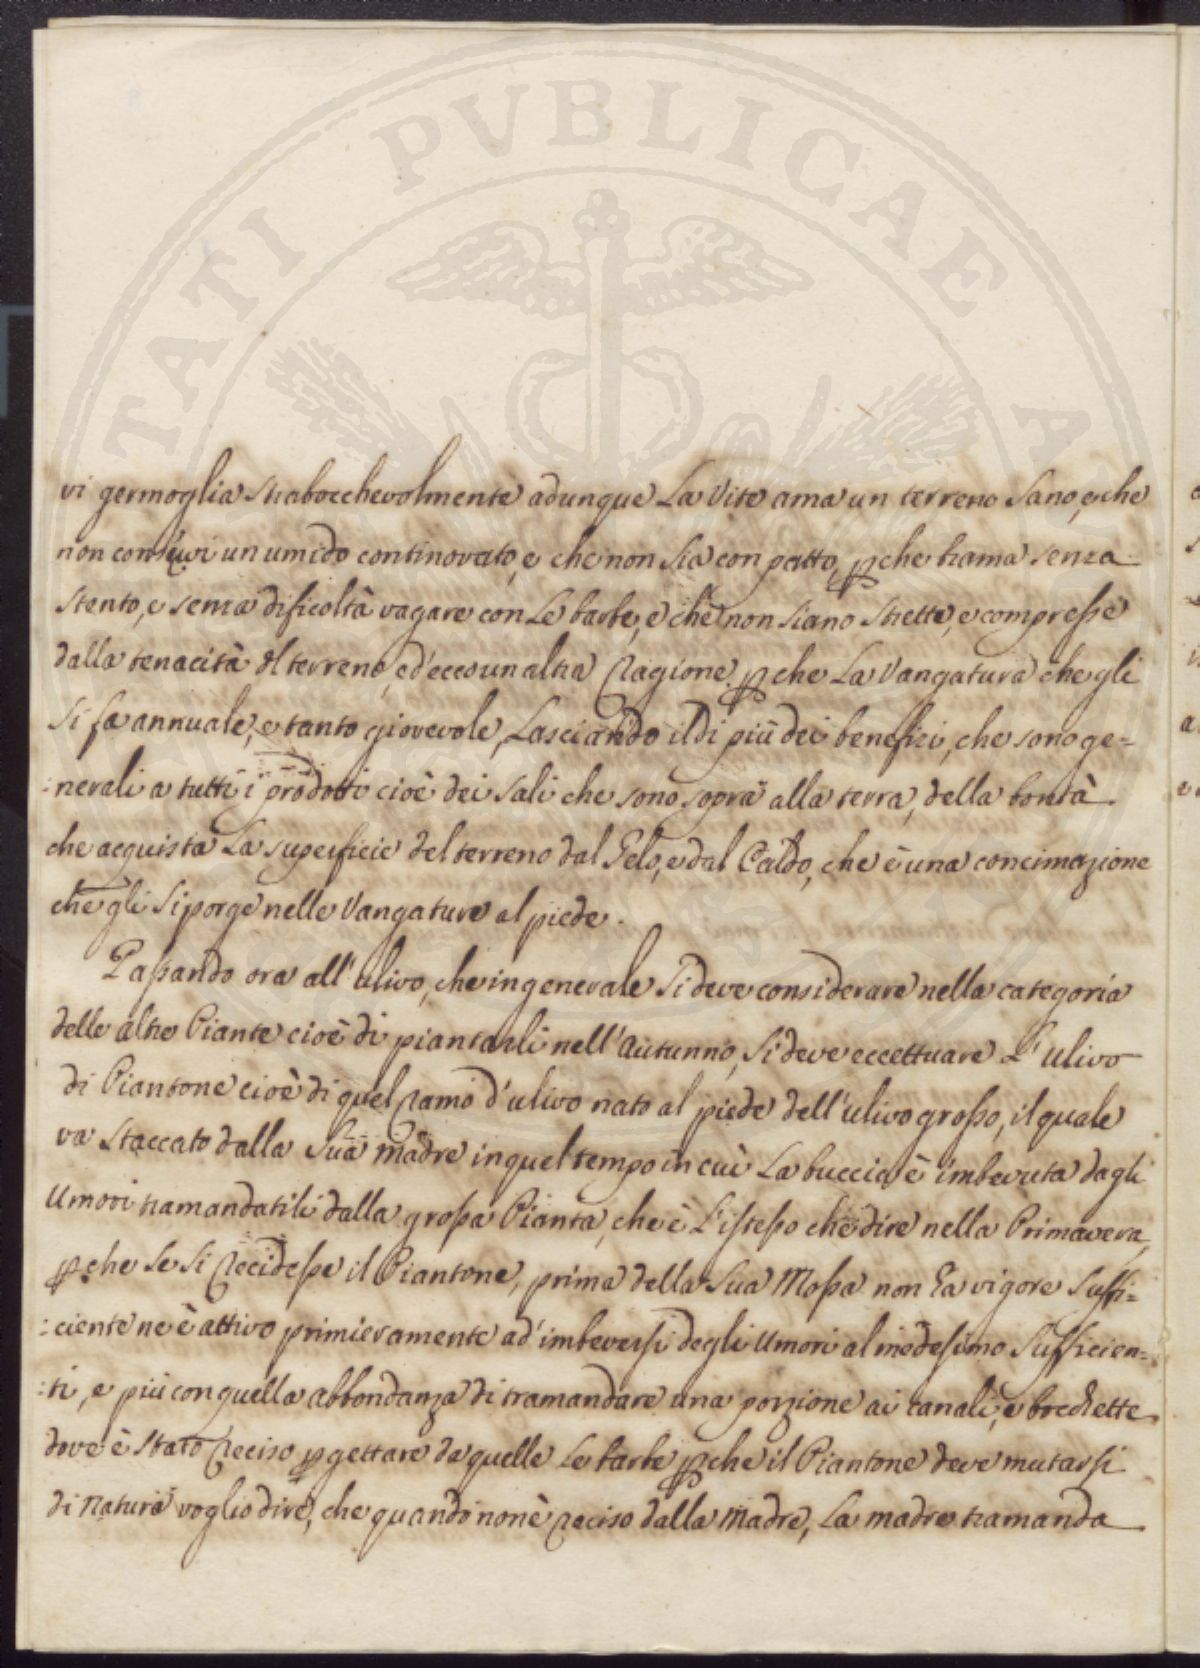 TATI PVBLICAE
vi germoglia strabocchevolmente adunque La Vite ama un terreno Sano, e che
non conservi un umido continovato, e che non sia conpatto, pche brama senza
stento, e senza dificoltà vagare con Le barbe, e che non siano strette, e compresse
dalla tenacità dl terreno, ed'ecco un altra Ragione pche La Vangatura che gli
si fa annuale, e tanto giovevole, Lasciando il di più dei benefizi, che sono ge=
:nerali a tutti i prodotti cioè dei sali che sono sopra alla terra, della bontà
che acquista La superficie del terreno dal Gelo, e dal Caldo, che è una concimazione
che gli si porge nelle Vangature al piede.
Passando ora all'ulivo, che in generale si deve considerare nella categoria
delle altre Piante cioè di piantarli nell'Autunno, si deve eccettuare L'ulivo
di Piantone cioè di quel Ramo d'ulivo nato al piede dell'ulivo grosso, il quale
va staccato dalla sua madre in quel tempo in cui La buccia è imbevuta dagli
Umori tramandatili dalla grossa Pianta, che è L'istesso che dire nella Primavera,
pche se si Recidesse il Piantone, prima della sua Mossa non ha vigore suffi=
:ciente ne è attivo primieramente ad'imbeversi degli Umori al medesimo sufficien=
:ti, e più con quella abbondanza di tramandare una porzione ai canali, e bocchette
dove è stato Reciso p gettare da quelle Le barbe pche il Piantone deve mutarsi
di natura voglio dire, che quando non è Reciso dalla Madre, La madre tramanda